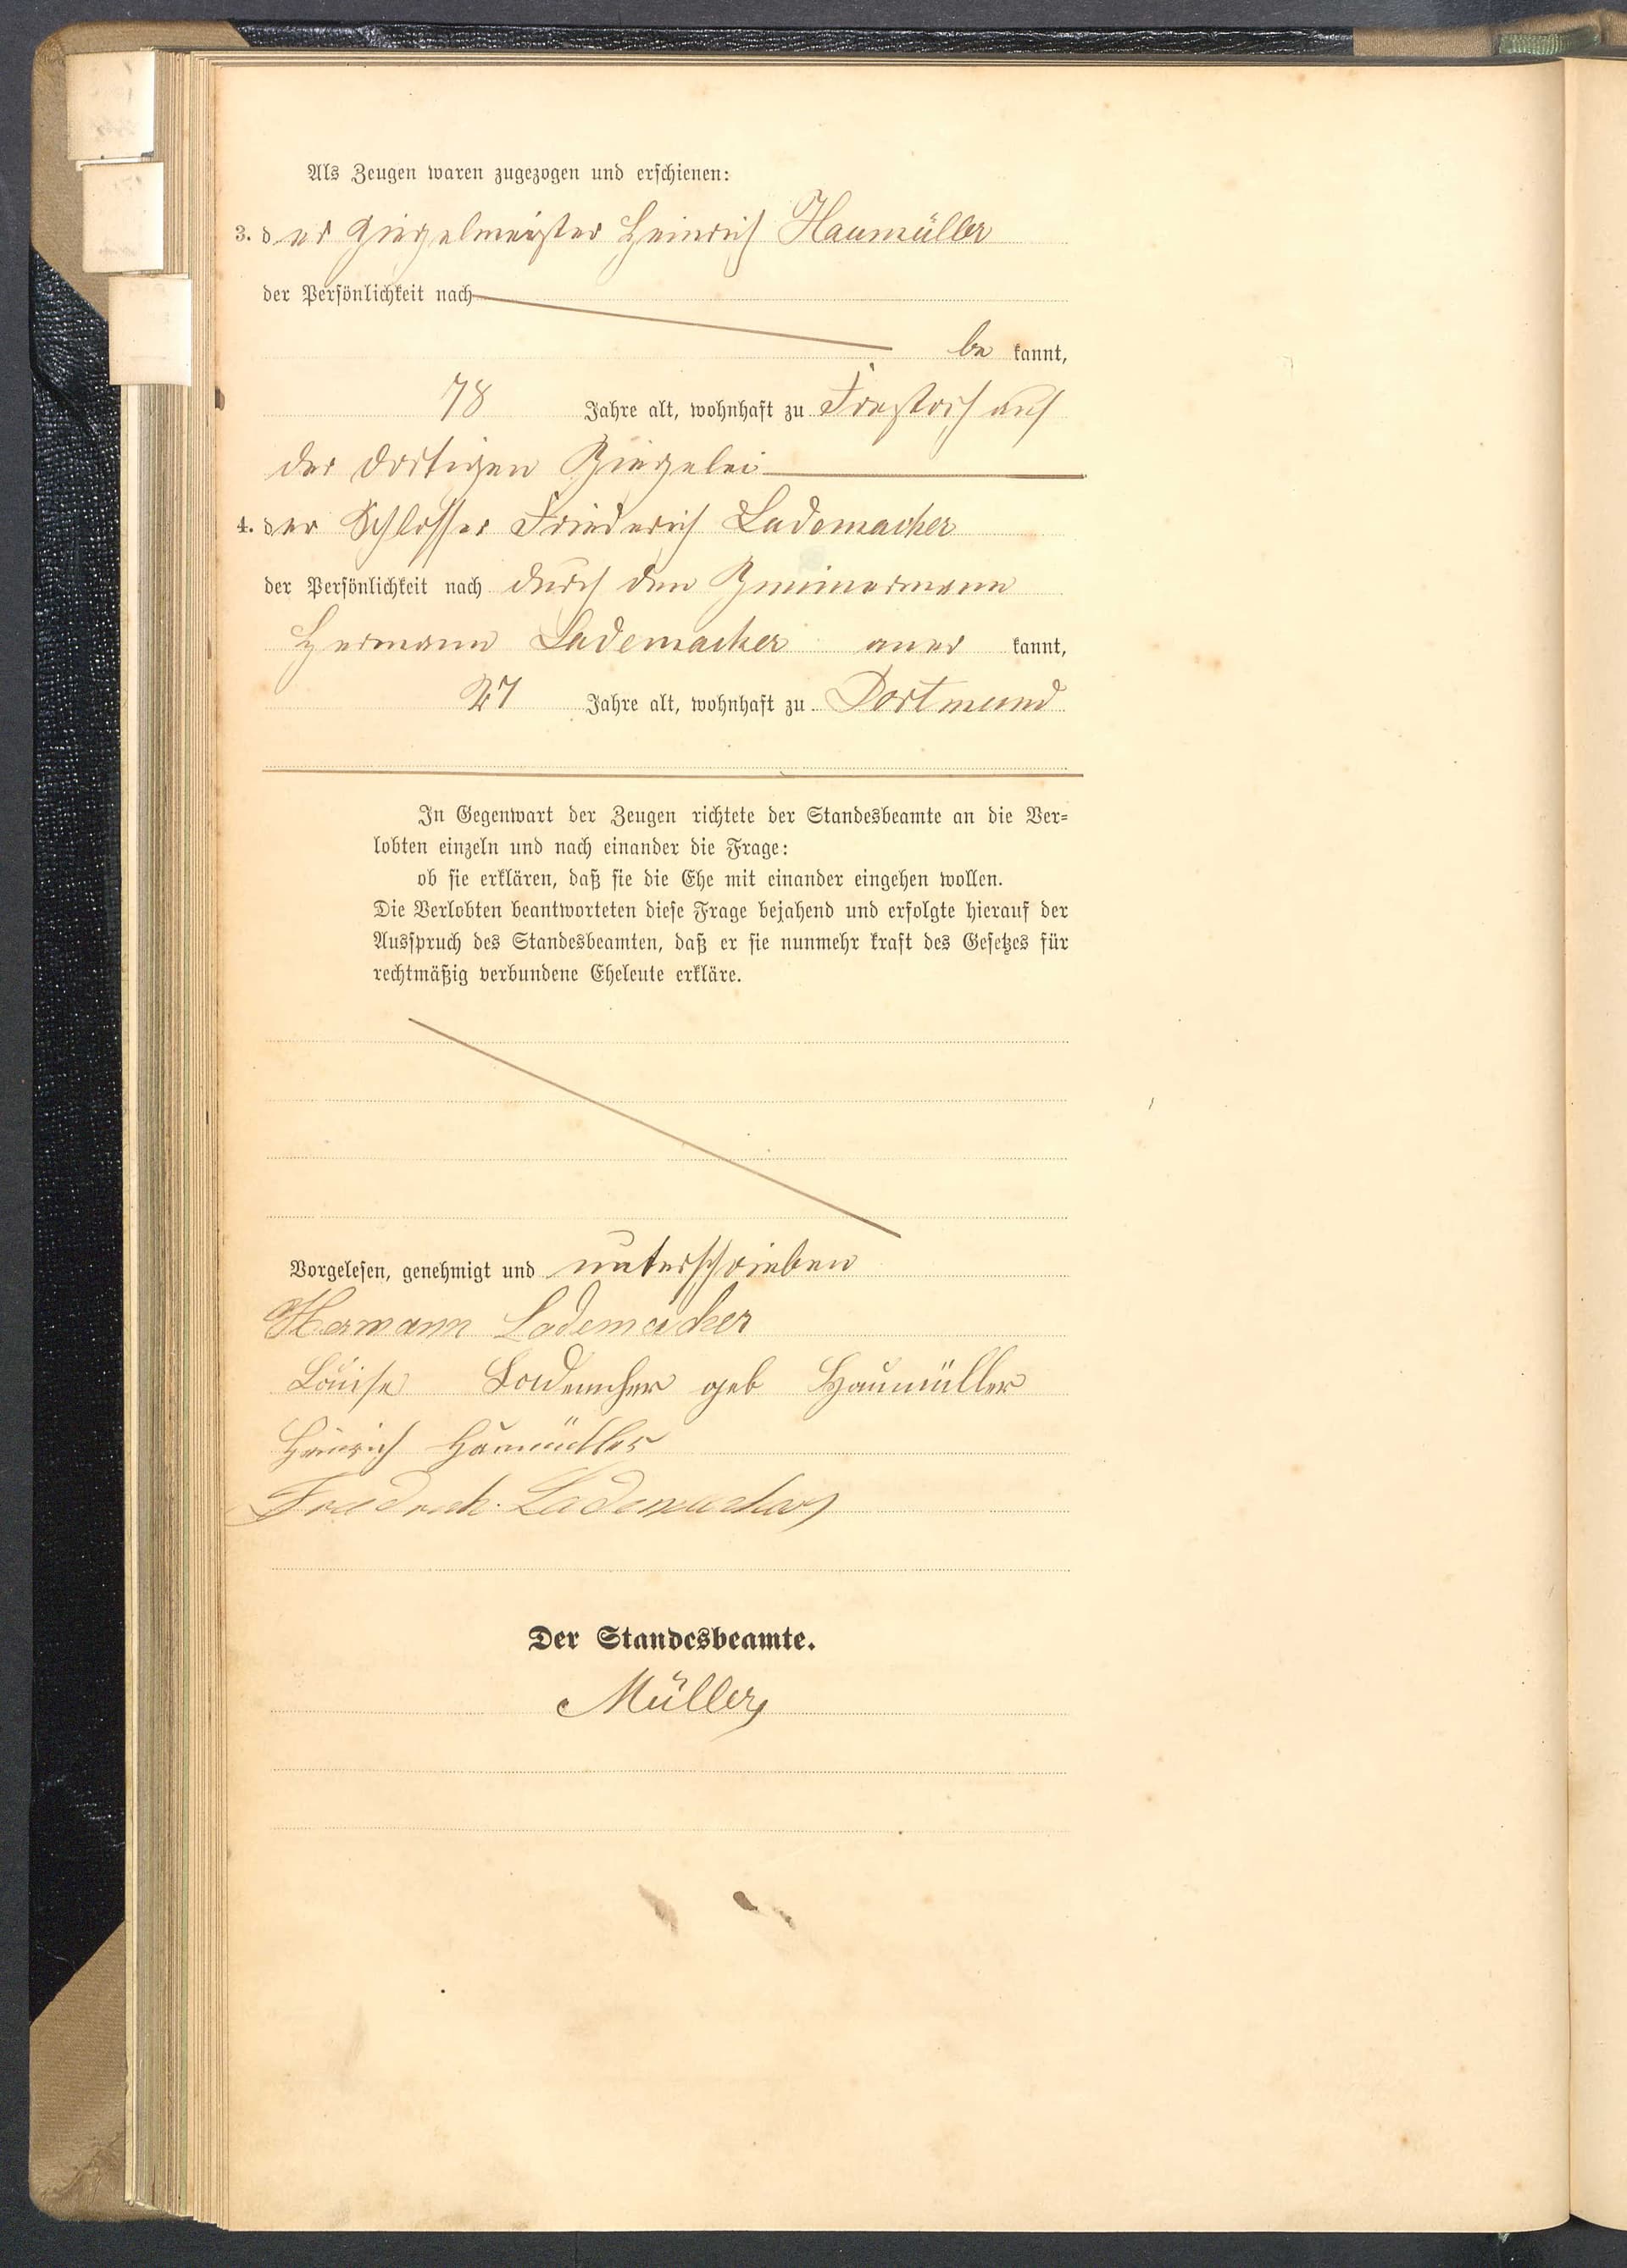 Als Zeugen waren zugezogen und erschienen:
3. der Ziegelmeister Heinrich Haumüller
der Persönlichkeit nach
be kannt,
78 Jahre alt, wohnhaft zu Frestorf auf
der dortigen Ziegelei
4. der Schlosser Friederich Lademacher
der Persönlichkeit nach durch den Zimmermann
Hermann Lademacher aner kannt,
27 Jahre alt, wohnhaft zu Dortmund
In Gegenwart der Zeugen richtete der Standesbeamte an die Ver=
lobten einzeln und nach einander die Frage:
ob sie erklären, daß sie die Ehe mit einander eingehen wollen.
Die Verlobten beantworteten diese Frage bejahend und erfolgte hierauf der
Ausspruch des Standesbeamten, daß er sie nunmehr kraft des Gesetzes für
rechtmäßig verbundene Eheleute erkläre.
Vorgelesen, genehmigt und unterschrieben
Hermann Lademacher
Louise Lademacher geb Haumüller
Heinrich Haumüller
Friedrich Lademacher
Der Standesbeamte.
Müller